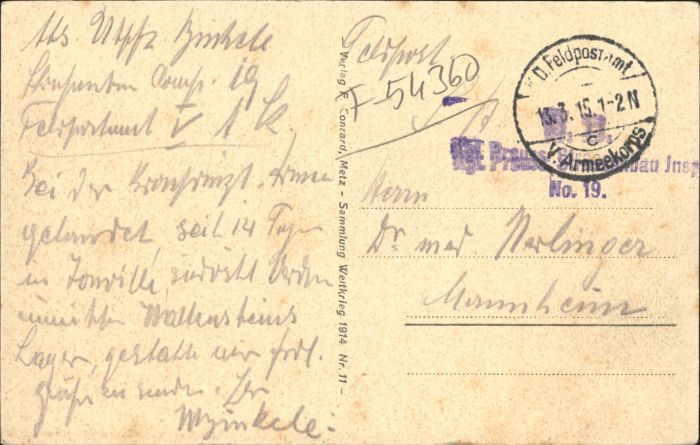 Abs. Utffz. Zinkele
Comp. 19
Feldpostamt V A K.
Bei der
gelandet, seit 14 Tagen
in Jonville, südöstl. Verdun
Wallensteins
Lager, gestatte mir frdl.
Grüße zu senden. Ihr
WZinkele.
Verlag F. Conrard, Metz - Sammlung Weltkrieg 1914 Nr. 11 -
Feldpost
F-54360
K.D. Feldpostamt
13.3.15. 1-2 N
c
V. Armeekorps
Kgl. Preuss. bau Insp.
No. 19.
Herrn
Dr. med Nerlinger
Mannheim